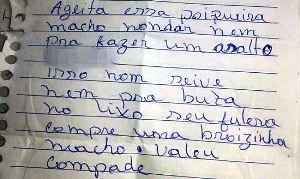 Ageita essa poipueira
macho hondar nem
pra fazer um asalto
isso nom seive
nem pra buta
no lixo seu fulera
compre uma broizinha
macho. valeu
compade